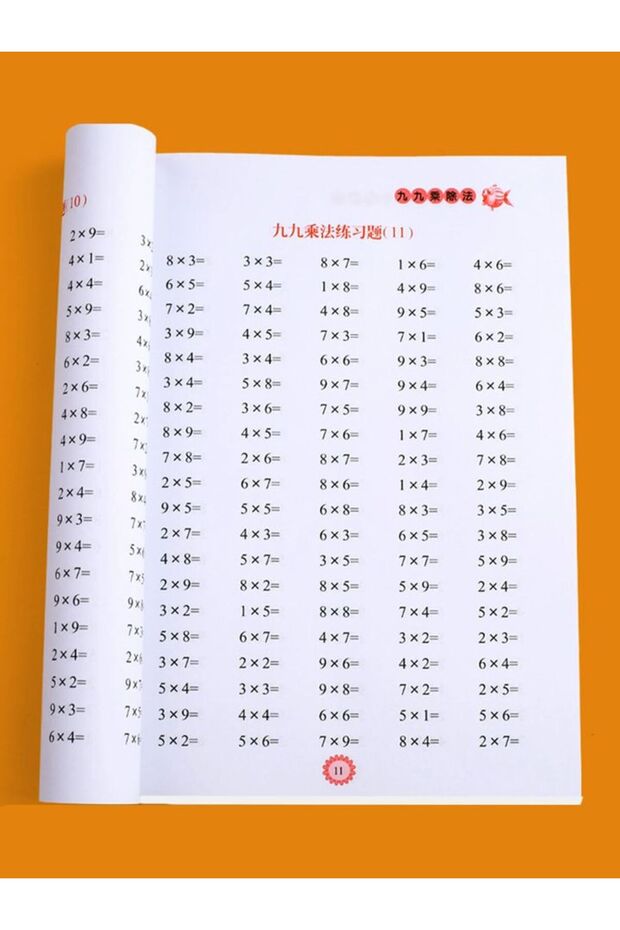 (10)
2×9=
4×1=
4×4=
5×9=
8×3=
6×2=
2×6=
4×8=
4×9=
1×7=
2×4=
9×3=
9×4=
6×7=
9×6=
1×9=
2×4=
5×2=
9×3=
6×4=
九九乘除法
九九乘法练习题(11)
8×3= 3×3= 8×7= 1×6= 4×6=
6×5= 5×4= 1×8= 4×9= 8×6=
7×2= 7×4= 4×8= 9×5= 5×3=
3×9= 4×5= 7×3= 7×1= 6×2=
8×4= 3×4= 6×6= 9×3= 8×8=
3×4= 5×8= 9×7= 9×4= 6×4=
8×2= 3×6= 7×5= 9×9= 3×8=
8×9= 4×5= 7×6= 1×7= 4×6=
7×8= 2×6= 8×7= 2×3= 7×8=
2×5= 6×7= 8×6= 1×4= 2×9=
9×5= 5×5= 6×8= 8×3= 3×5=
2×7= 4×3= 6×3= 6×5= 3×8=
4×8= 5×7= 3×5= 7×7= 5×9=
2×9= 8×2= 8×5= 5×9= 2×4=
3×2= 1×5= 8×8= 7×4= 5×2=
5×8= 6×7= 4×7= 3×2= 2×3=
3×7= 2×2= 9×6= 4×2= 6×4=
5×4= 3×3= 9×8= 7×2= 2×5=
3×9= 4×4= 6×6= 5×1= 5×6=
5×2= 5×6= 7×9= 8×4= 2×7=
11